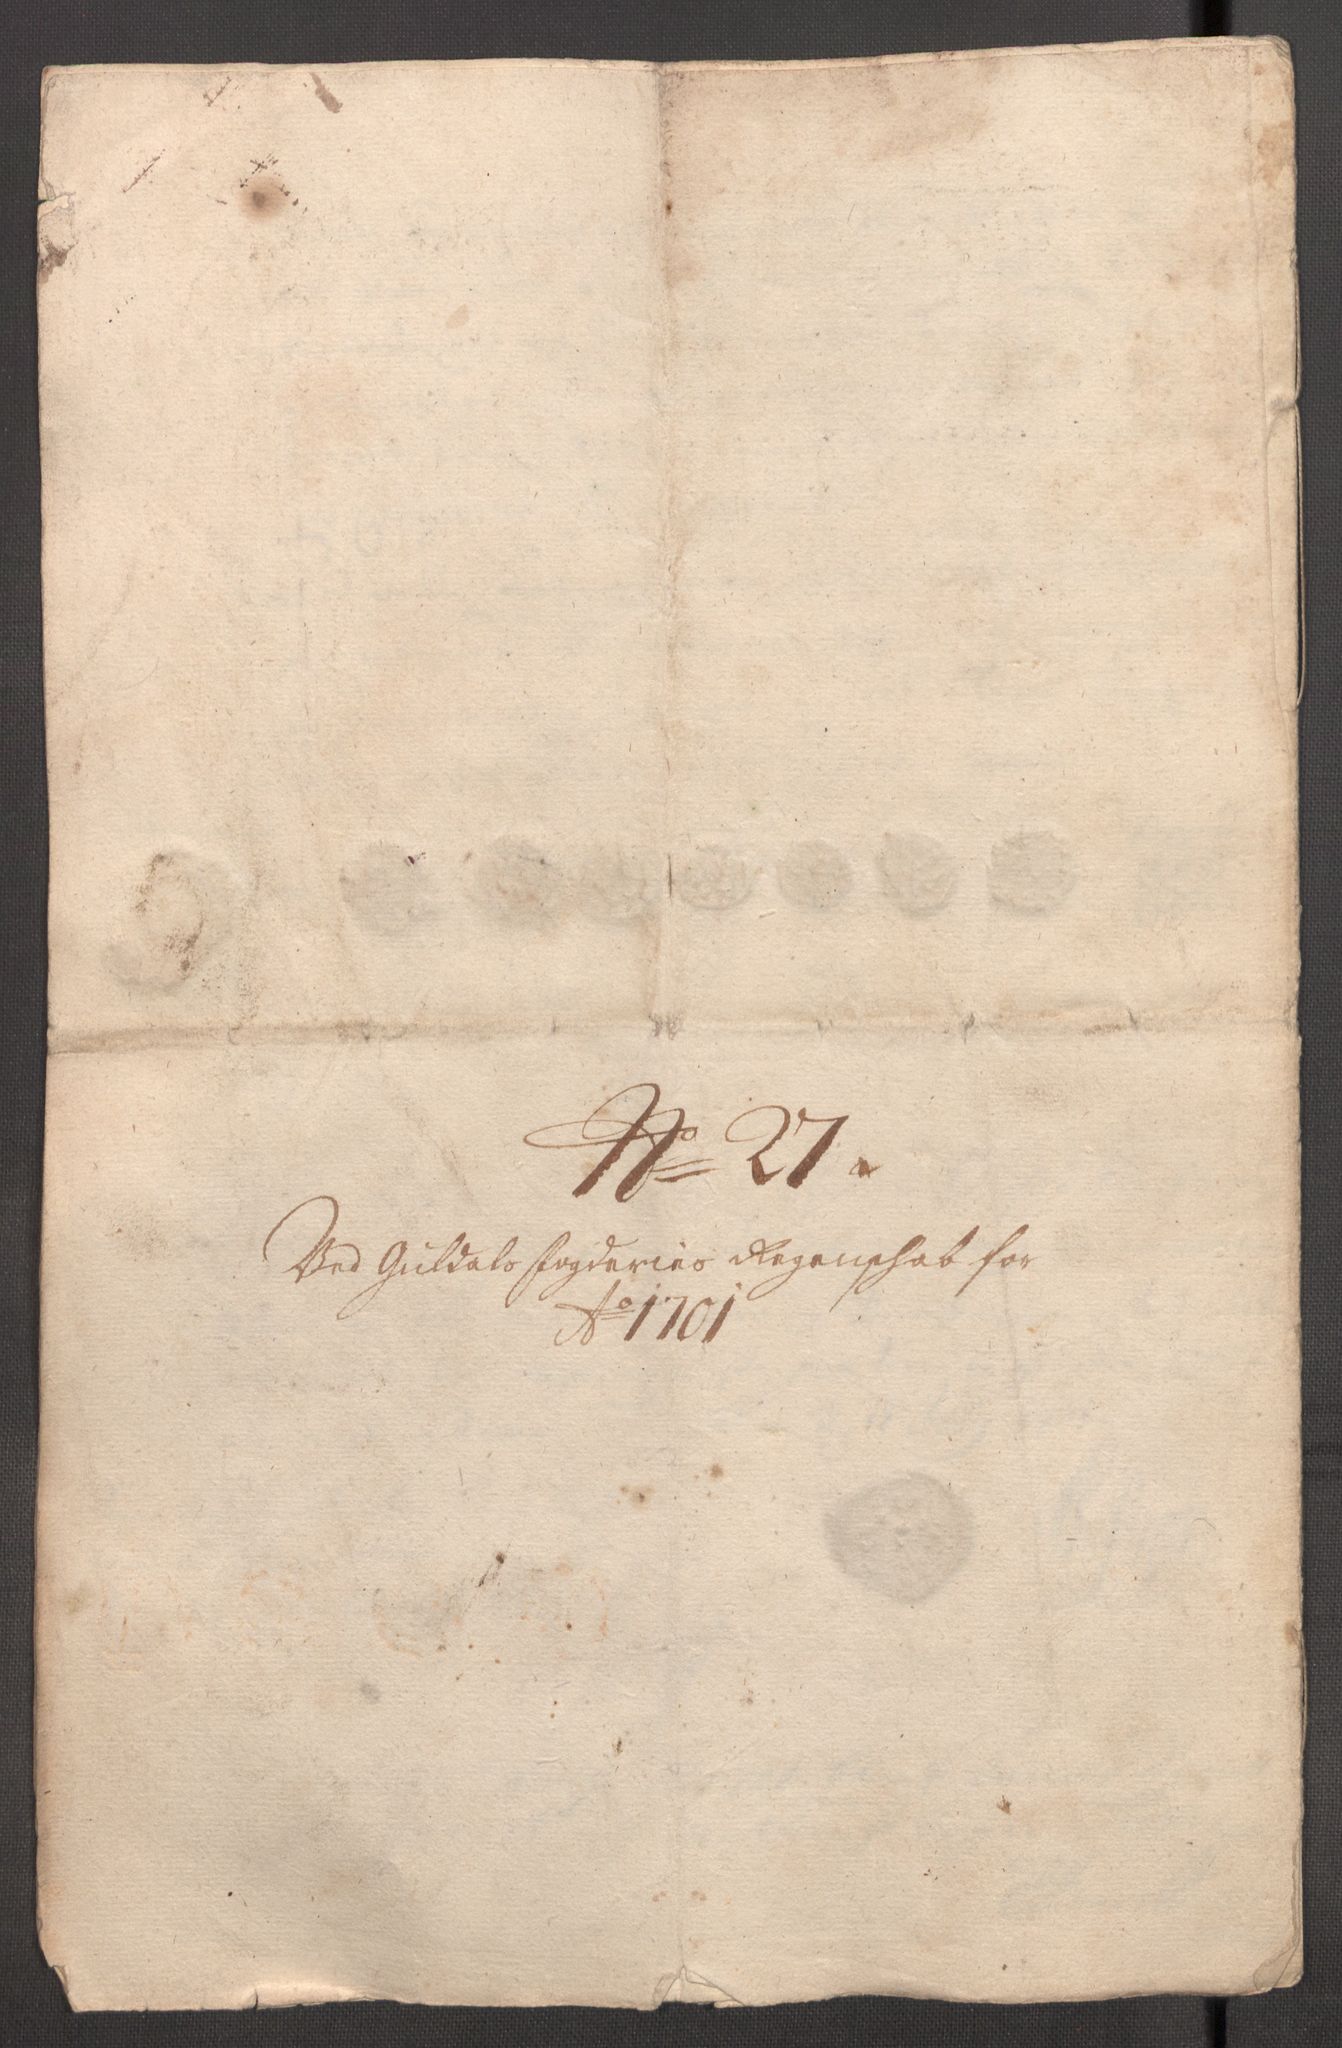 No 27.
Ved Guldals fogderies Regenschab for
Ao 1701